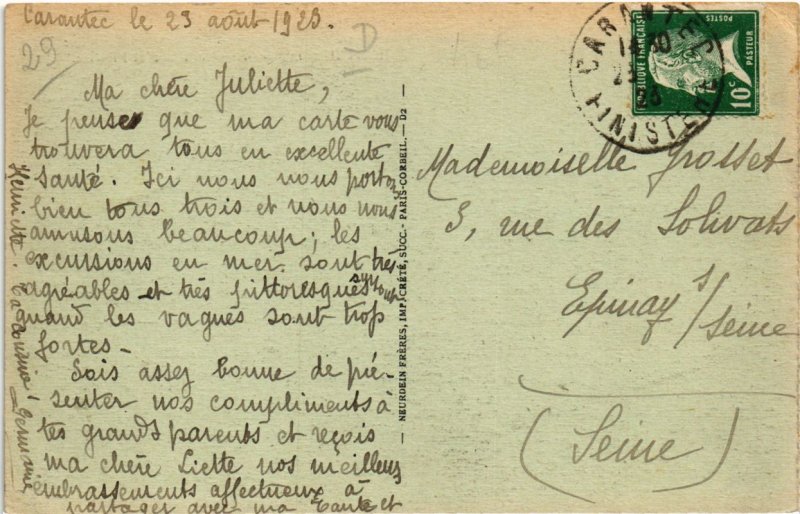 Carantec le 23 août 1923.
29
D
Ma chère Juliette,
Je pense que ma carte vous
trouvera tous en excellente
santé. Ici nous nous portons
bien tous trois et nous nous
amusons beaucoup; les
excursions en mer sont très
agréables et très pittoresques surtout
quand les vagues sont trop
fortes.
Sois assez bonne de pré-
senter nos compliments à
tes grands parents et reçois
ma chère Liette nos meilleurs
embrassements affectueux à
partager avec ma Tante et
Germaine
NEURDEIN FRÈRES, IMP. CRÉTÉ, SUCC. - PARIS-CORBEIL. - D2
CARANTEC
FINISTÈRE
POSTES
RÉPUBLIQUE FRANÇAISE
PASTEUR
10c
Mademoiselle Grosset
3, rue des Solivats
Epinay s/Seine
(Seine)